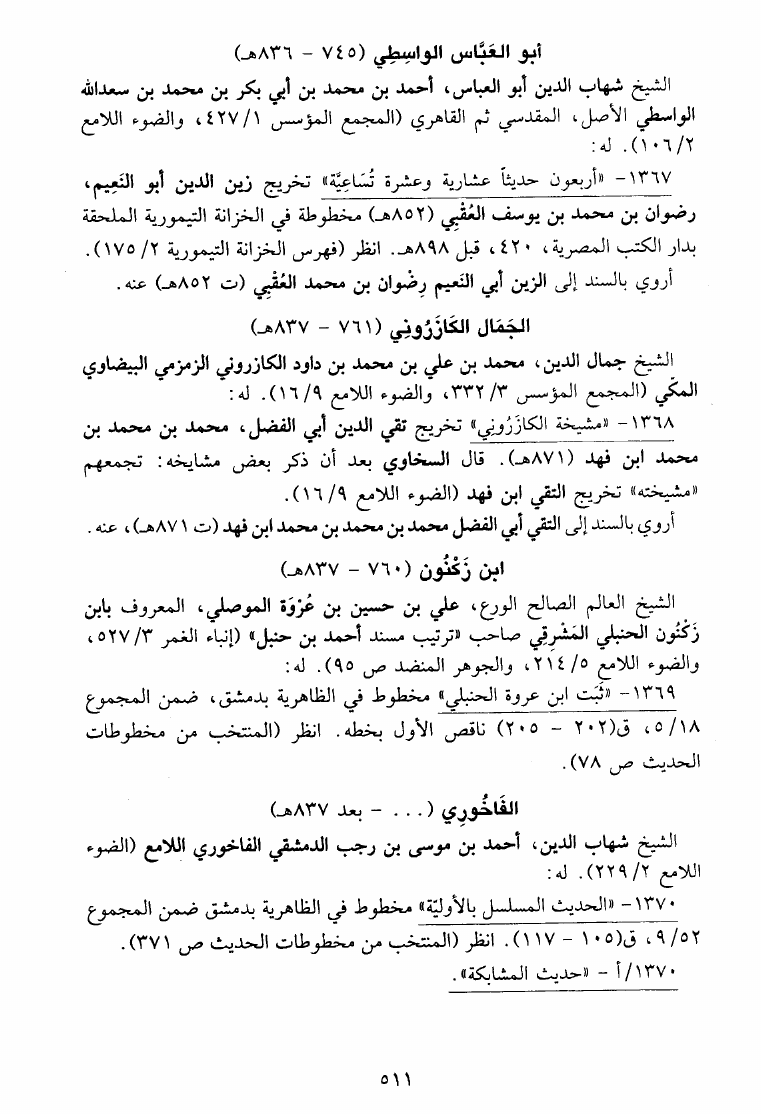 أبو العَبَّاس الواسِطِي (٧٤٥ - ٨٣٦هـ)
الشيخ شهاب الدين أبو العباس، أحمد بن محمد بن أبي بكر بن محمد بن سعدالله
الواسطي الأصل، المقدسي ثم القاهري (المجمع المؤسس ٤٢٧/١، والضوء اللامع
١٠٦/٢). له:
١٣٦٧- «أربعون حديثاً عشارية وعشرة تُسَاعِيَّة» تخريج زين الدين أبو النَعِيم،
رضوان بن محمد بن يوسف العُقْبِي (٨٥٢هـ) مخطوطة في الخزانة التيمورية الملحقة
بدار الكتب المصرية، ٤٢٠، قبل ٨٩٨هـ. انظر (فهرس الخزانة التيمورية ١٧٥/٢).
أروي بالسند إلى الزين أبي النَعيم رِضْوان بن محمد العُقْبِي (ت ٨٥٢هـ) عنه.
الجَمَال الكَازَرُونِي (٧٦١ - ٨٣٧هـ)
الشيخ جمال الدين، محمد بن علي بن محمد بن داود الكازروني الزمزمي البيضاوي
المكّي (المجمع المؤسس ٣٣٢/٣، والضوء اللامع ١٦/٩). له:
١٣٦٨- «مشيخة الكازَرُوني» تخريج تقي الدين أبي الفضل، محمد بن محمد بن
محمد ابن فهد (٨٧١هـ). قال السخاوي بعد أن ذكر بعض مشايخه: تجمعهم
«مشيخته» تخريج التقي ابن فهد (الضوء اللامع ١٦/٩).
أروي بالسند إلى التقي أبي الفضل محمد بن محمد بن محمد ابن فهد (ت ٨٧١هـ)، عنه.
ابن زَكْنُون (٧٦٠ - ٨٣٧هـ)
الشيخ العالم الصالح الورع، علي بن حسين بن عُرْوَة الموصلي، المعروف بابن
زَكْنُون الحنبلي المَشْرِقِي صاحب «ترتيب مسند أحمد بن حنبل» (إنباء الغمر ٥٢٧/٣،
والضوء اللامع ٢١٤/٥، والجوهر المنضد ص ٩٥). له:
١٣٦٩- «ثَبَت ابن عروة الحنبلي» مخطوط في الظاهرية بدمشق، ضمن المجموع
٥/١٨، ق(٢٠٢ - ٢٠٥) ناقص الأول بخطه. انظر (المنتخب من مخطوطات
الحديث ص ٧٨).
الفَاخُورِي (... - بعد ٨٣٧هـ)
الشيخ شهاب الدين، أحمد بن موسى بن رجب الدمشقي الفاخوري اللامع (الضوء
اللامع ٢٢٩/٢). له:
١٣٧٠- «الحديث المسلسل بالأوليّة» مخطوط في الظاهرية بدمشق ضمن المجموع
٩/٥٢، ق(١٠٥ - ١١٧). انظر (المنتخب من مخطوطات الحديث ص ٣٧١).
١٣٧٠/أ - «حديث المشابكة».
٥١١